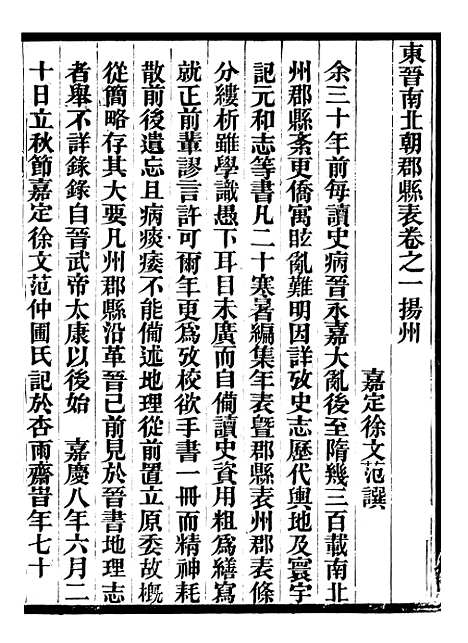 東晉南北朝郡縣表卷之一揚州
嘉定徐文范譔
余三十年前每讀史病晉永嘉大亂後至隋幾三百載南北
州郡縣紊更僑寓眩亂難明因詳攷史志歷代輿地及寰宇
記元和志等書凡二十寒暑編集年表曁郡縣表州郡表條
分縷析雖學識愚下耳目未廣而自備讀史資用粗為繕寫
就正前輩謬言許可爾年更為攷校欲手書一冊而精神耗
散前後遺忘且病痰痿不能備述地理從前置立原委故槪
從簡略存其大要凡州郡縣沿革晉已前見於晉書地理志
者舉不詳錄錄自晉武帝太康以後始 嘉慶八年六月二
十日立秋節嘉定徐文范仲圃氏記於杏雨齋旹年七十